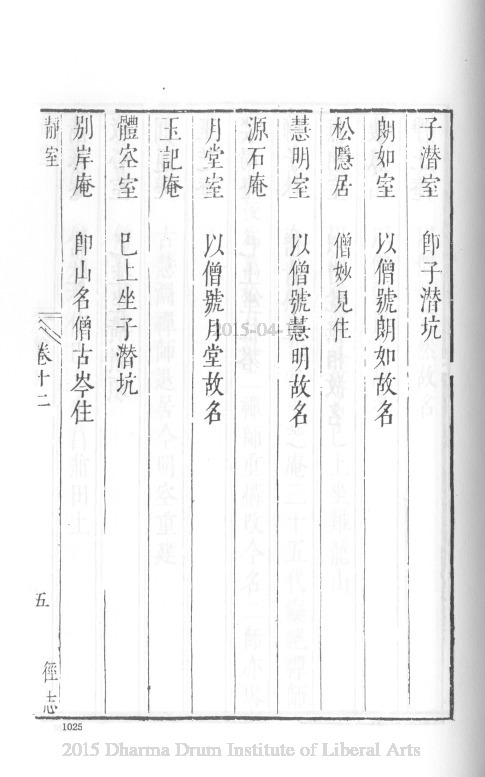 子潛室　即子潛坑
朗如室　以僧號朗如故名
松隱居　僧妙見住
慧明室　以僧號慧明故名
源石庵
月堂室　以僧號月堂故名
玉記庵
體空室　已上坐子潛坑
別岸庵　卽山名僧古岑住
靜室　卷十二　五　徑志
1025
2015-04
2015 Dharma Drum Institute of Liberal Arts